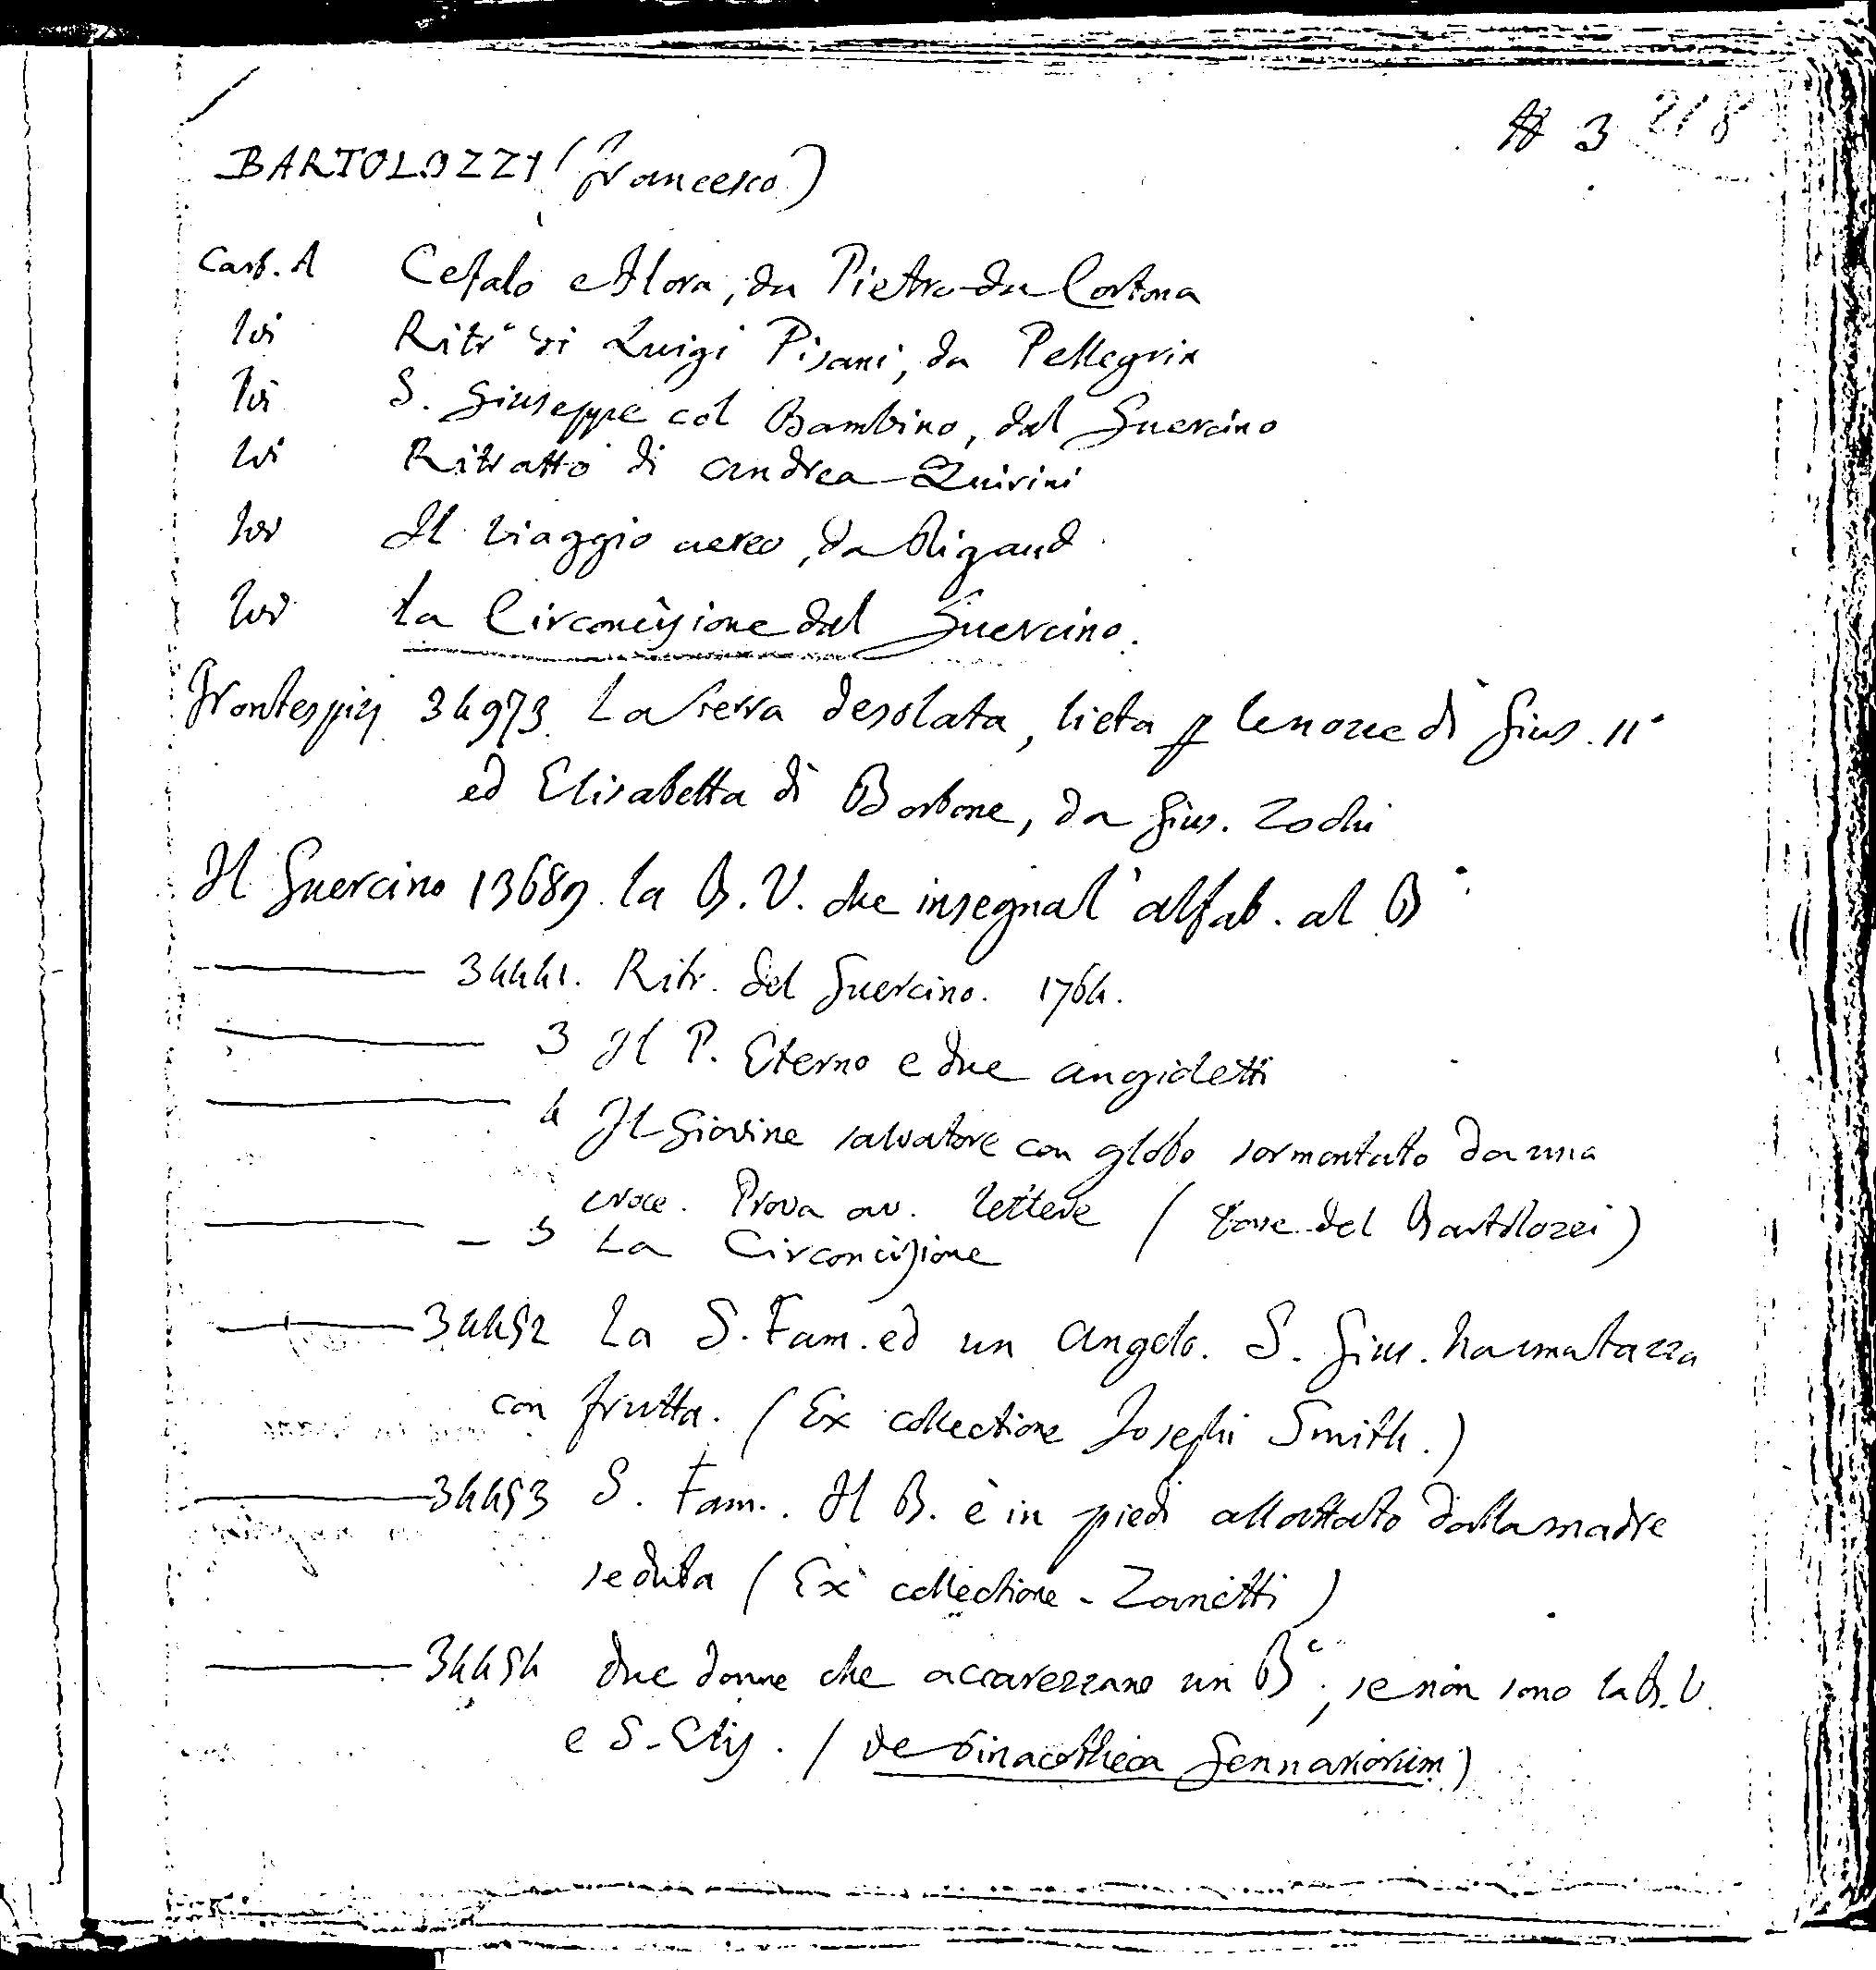 # 3 218
BARTOLOZZI (Francesco)
Cart. A Cefalo e Flora, da Pietro da Cortona
Ivi Ritr° di Luigi Pisani, da Pellegrin
Ivi S. Giuseppe col Bambino, dal Guercino
Ivi Ritratto di Andrea Quirini
Ivi Il viaggio aereo, da Rigaud
Ivi La Circoncisione dal Guercino.
Frontespizj 34973. La Terra desolata, lieta p le nozze di Gius. II°
ed Elisabetta di Borbone, da Gius. Zochi
Il Guercino 13689. la B. V. che insegna l'alfab. al B°.
34441. Ritr. del Guercino. 1764.
3 Il P. Eterno e due angioletti
4 Il Giovine salvatore con globo sormontato da una
croce. Prova av. lettere ( del Bartolozzi)
— 5 La Circoncisione
34452 La S. Fam. ed un Angelo. S. Gius. ha una tazza
con frutta. (Ex collectione Josephi Smith.)
34453 S. Fam. Il B. è in piedi allattato dalla madre
seduta (Ex collectione - Zanetti)
34454 due donne che accarezzano un B°., se non sono la B. V.
e S. Elis. (de Pinacotheca Gennariorum)